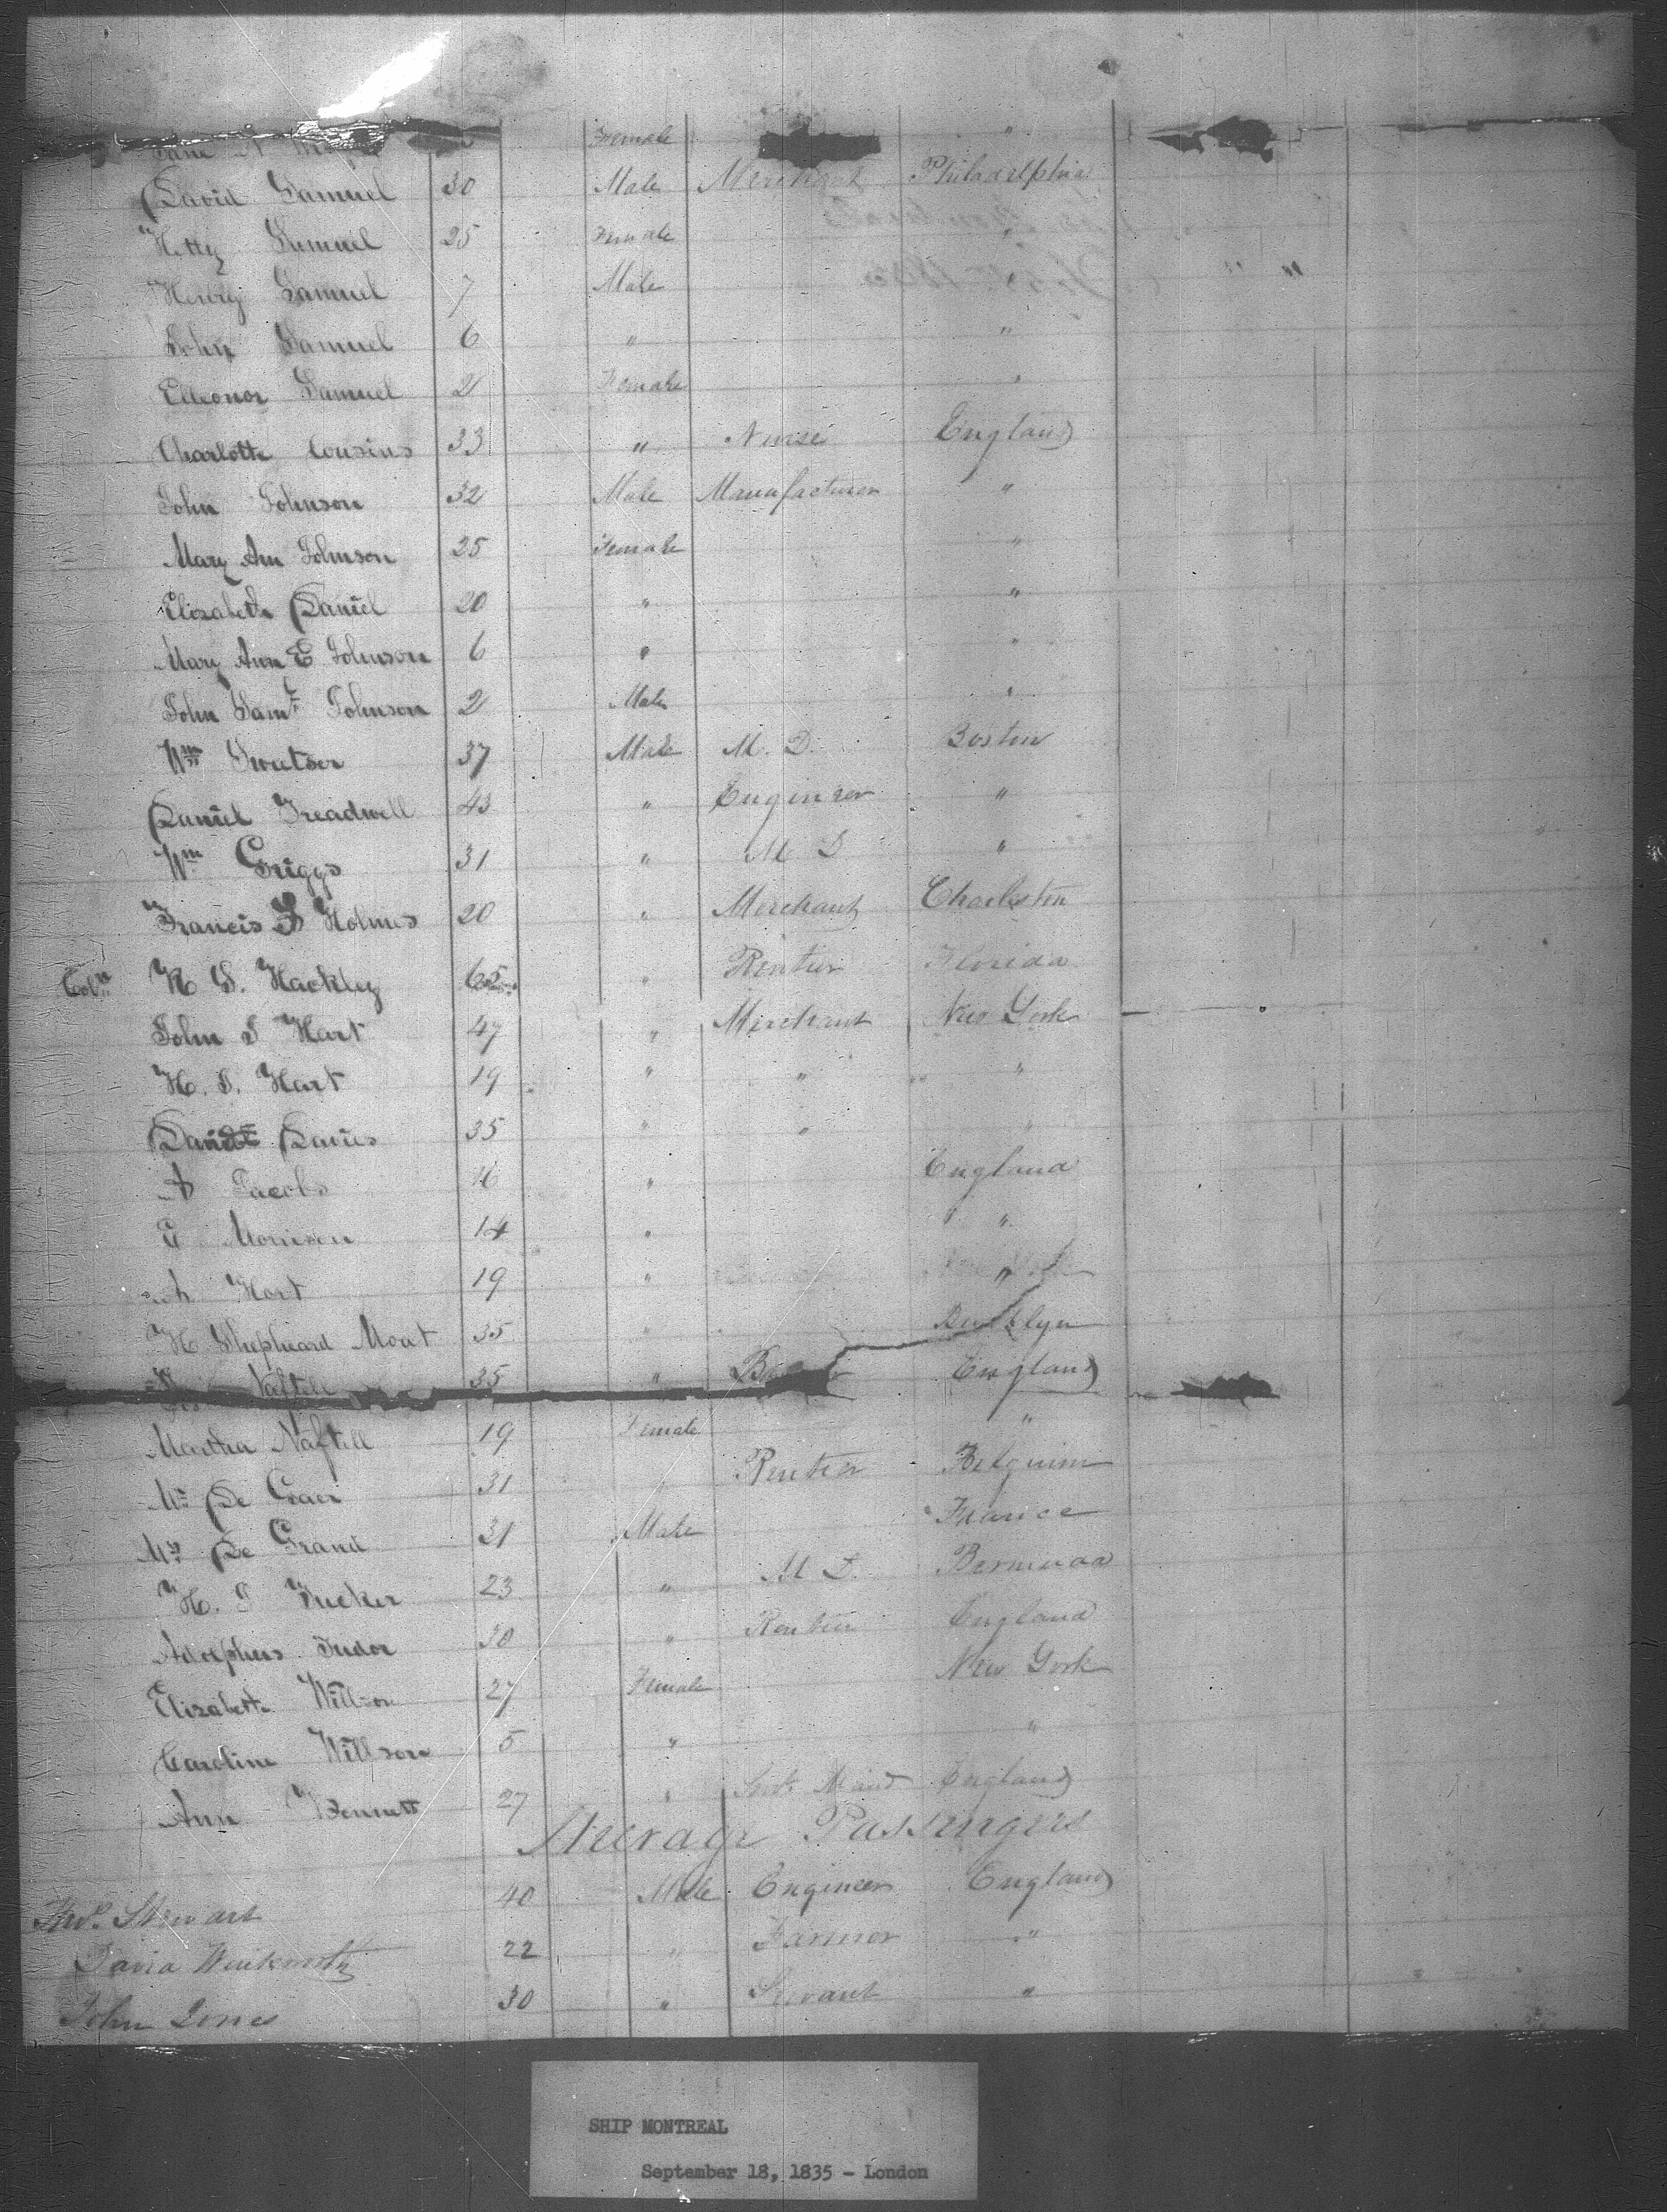 Jane Female "
David Samuel 30 Male Merchant Philadelphia
Hetty Samuel 25 Female "
Henry Samuel 7 Male "
John Samuel 6 " "
Elleonor Samuel 2 Female "
Charlotte Cousins 33 " Nurse England
John Johnson 32 Male Manufacturer "
Mary Ann Johnson 25 Female "
Elizabeth Daniel 20 " "
Mary Ann E Johnson 6 " "
John Saml Johnson 2 Male "
Wm Sweetser 37 Male M. D. Boston
Daniel Treadwell 43 " Engineer "
Wm Griggs 31 " M D "
Francis S Holmes 20 " Merchant Charleston
Coln R S. Hackley 65 " Rentier Florida
John S Hart 47 " Merchant New York
H. S. Hart 19 " " "
Davies 35 " " "
A Jacobs 16 " England
G Morrison 14 " "
Hart 19 " "
H Shepheard Moat 35 " Brooklyn
Naftell 35 " England
Martha Naftell 19 Female "
Mr De 31 " Rentier Belguim
Mr De Grand 31 Male France
H. J Tucker 23 " M D. Bermuda
Adolphus Tudor 30 " Rentier England
Elizabeth Willson 27 Female New York
Caroline Willson 5 " "
Ann Bennett 27 " Maid England
Steerage Passengers
Stewart 40 Male Engineer England
David Winkworth 22 " Farmer "
John Jones 30 " Servant "
SHIP MONTREAL
September 18, 1835 - London